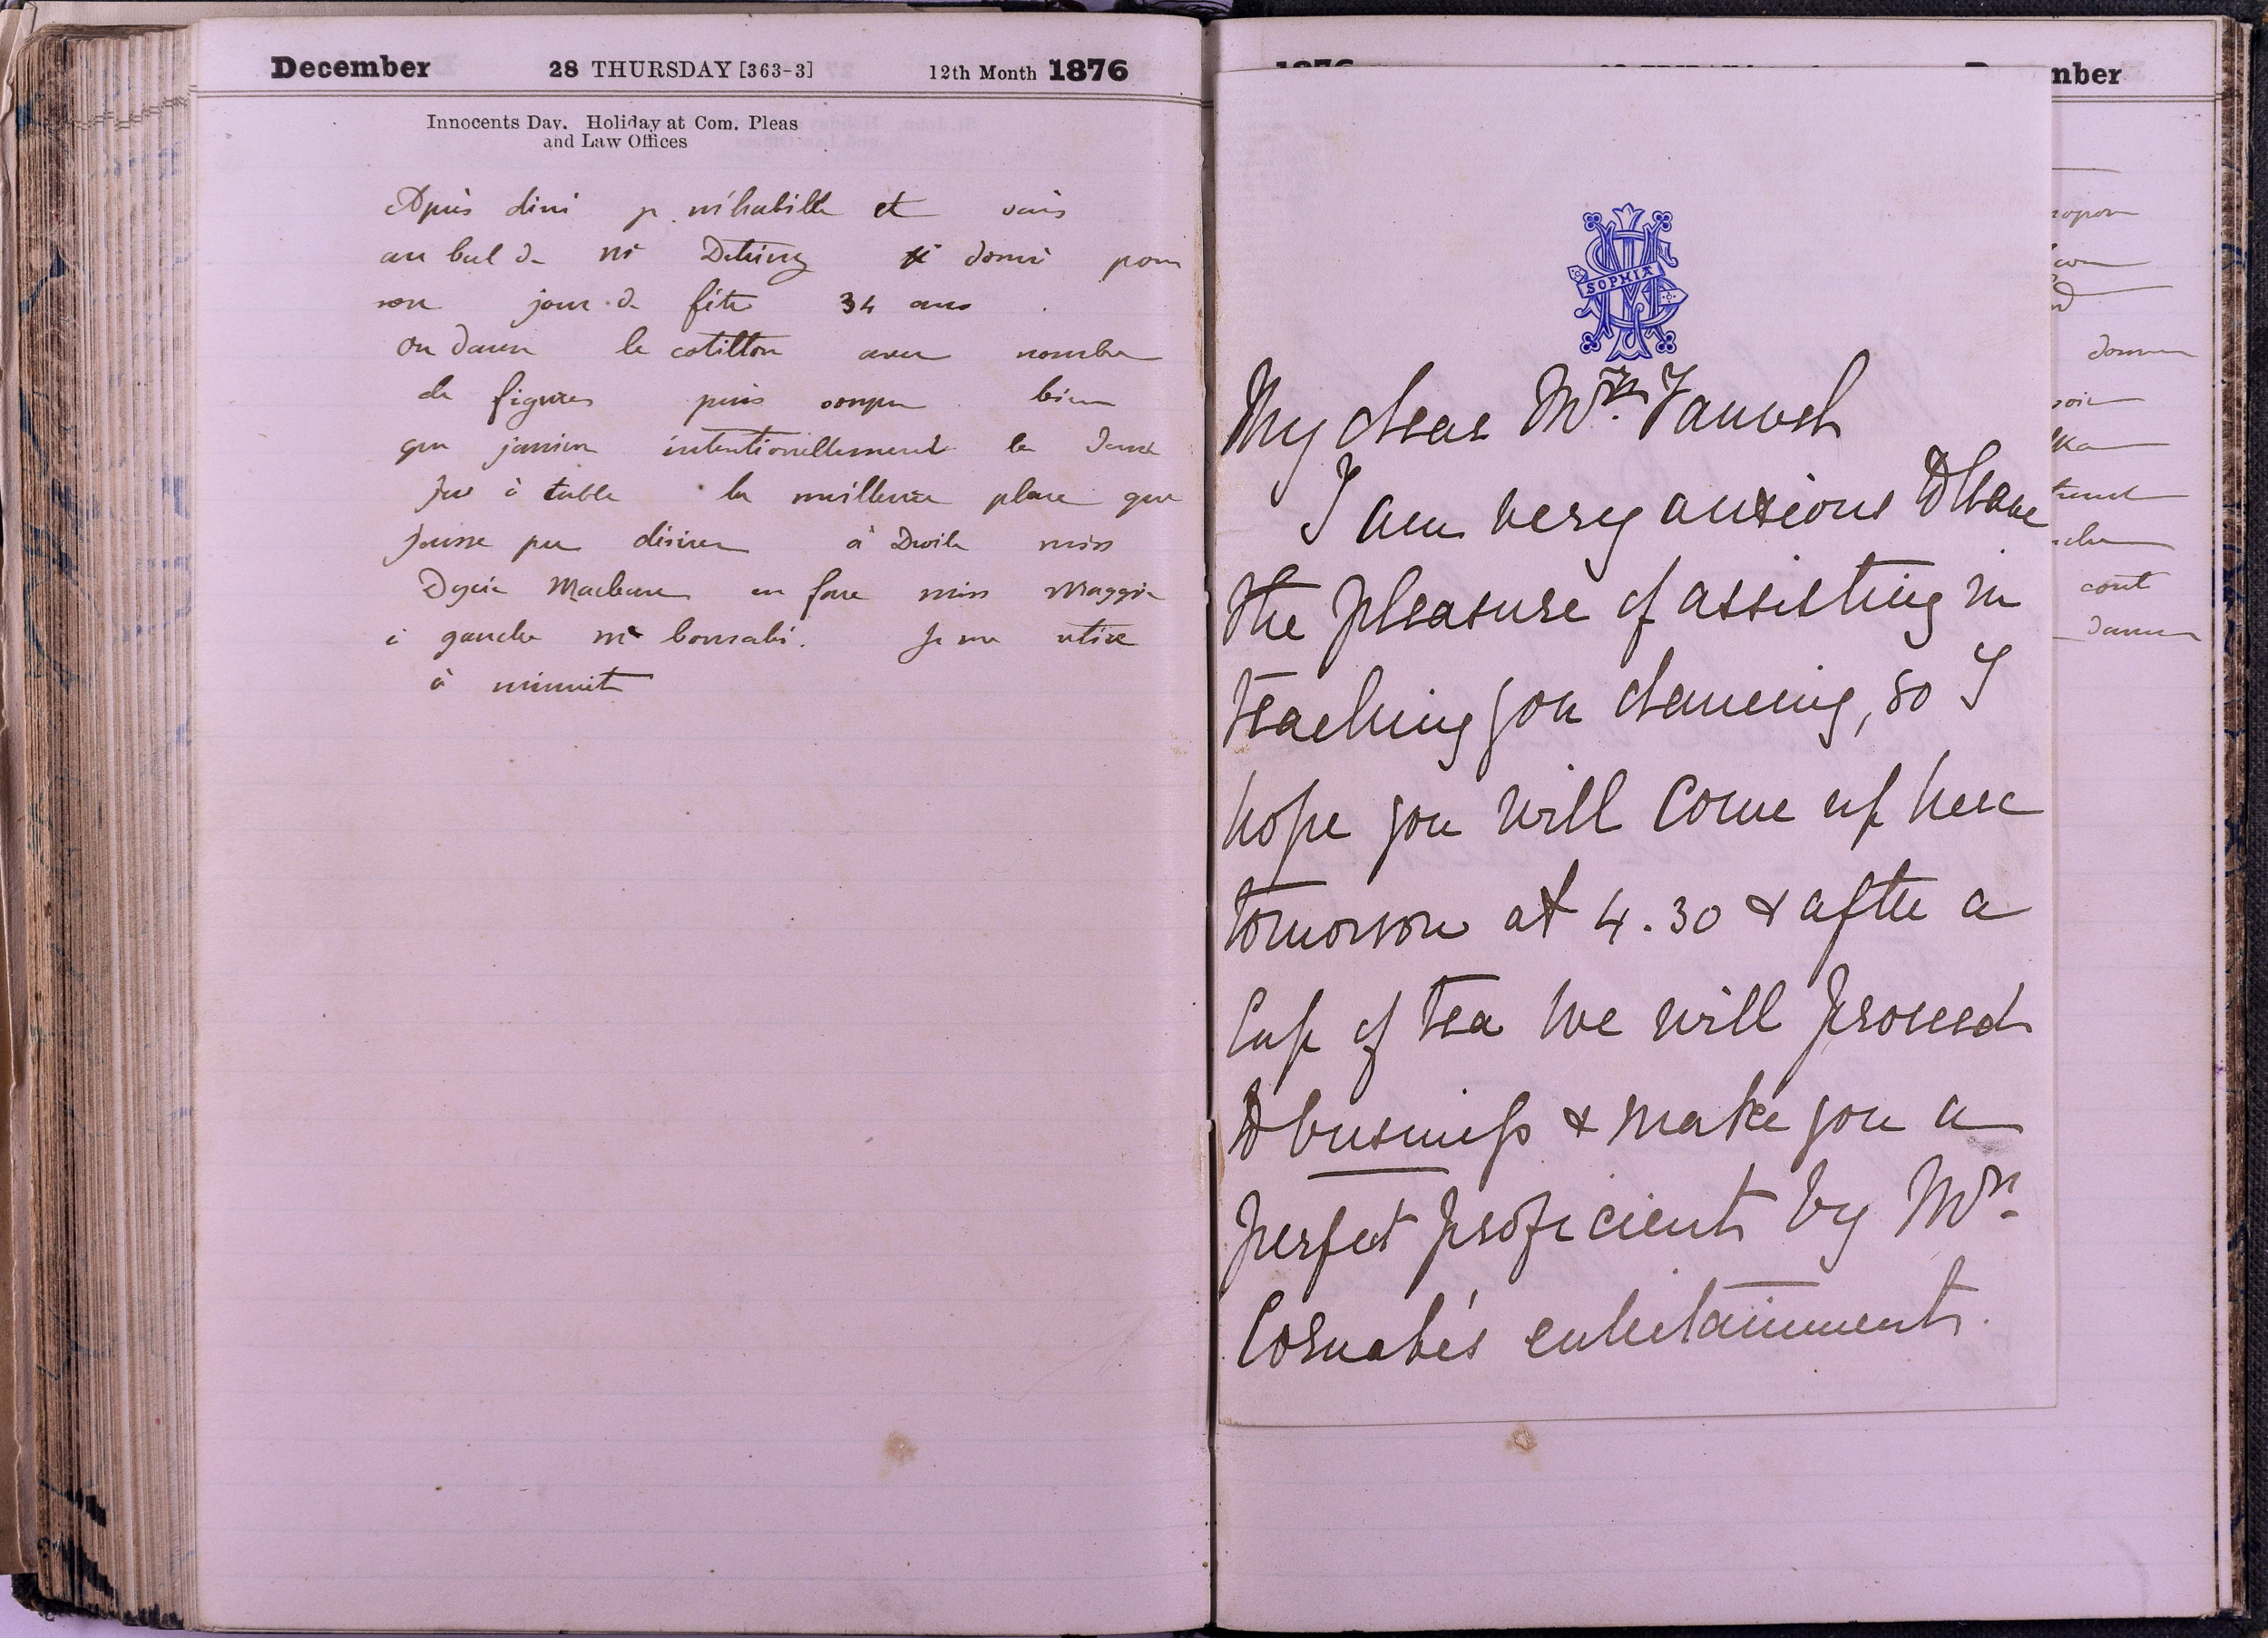 December 28 THURSDAY [363-3] 12th Month 1876
Innocents Day. Holiday at Com. Pleas
and Law Offices
Après diné je m'habille et vais
au bal de Mr Detring donné pour
son jour de fête 34 ans
on danse le cotillon avec nombre
de figures puis souper bien
que jamais intentionellement la dame
J'eus à table la meilleure place que
J'eusse pu désirer à Droite miss
Maclean en face miss Maggie
à gauche Mr Cornabé. Je me retire
à minuit
1876 December
SOPHIA
My dear Mr. Fauvel
I am very anxious to have
the pleasure of assisting in
teaching you dancing, so I
hope you will come up here
tomorrow at 4.30 & after a
Cup of tea we will proceed
to business & make you a
perfect proficient by Mrs
Cornabé's entertainment.
donner
cout
danse